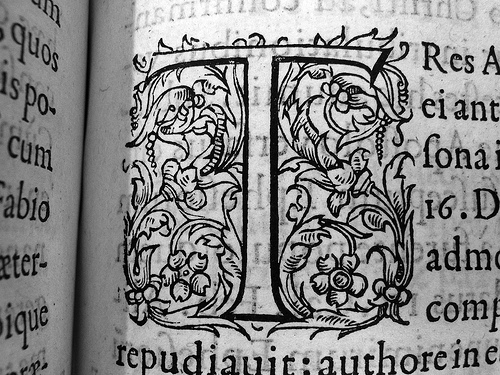 quos
is po-
cum
Fabio
æter-
ique
T
Res A
ei ant
ſona i
16. D
admo
comp
repudiauit: authore in e